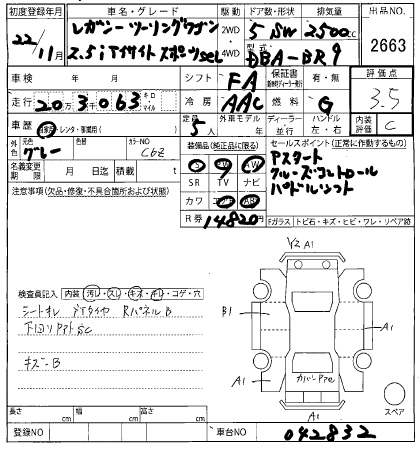 初度登録年月 車名・グレード 駆動 ドア数・形状 排気量 出品NO.
22/11月 レガシーツーリングワゴン 2WD 4WD 5 SW 2500cc 2663
2.5iアイサイト スポーツsel 型式 DBA-BR9
車検 年 月 シフト FA 保証書 有・無 評価点 3.5
走行 20万3千063 キロ マイル 冷房 AAC 燃料 G
車歴 自家用 レンタ・事業用( ) 定員 5人 外車モデル 年 ディーラー 並行 ハンドル 左・右 内装評価 C
外色 元色 グレー 色替 カラーNO C6Z
装備品(純正品に限る) セールスポイント(正常に作動するもの)
名義変更期限 月 日迄 積載 t
PS PW AW
SR TV ナビ
カワ エアB ABS
R券 14820円
Pスタート
クルーズコントロール
パドルシフト
注意事項(欠品・修復・不具合箇所および状態)
Fガラス トビ石・キズ・ヒビ・ワレ・リペア跡
検査員記入 内装 汚レ・スレ・キズ・切レ・コゲ・穴
シートオレ RパネルB
下回り SC
キズ-B
A1
B1
A1
A1
A1
スペア
長さ cm 幅 cm 高さ cm
登録NO 車台NO 042832